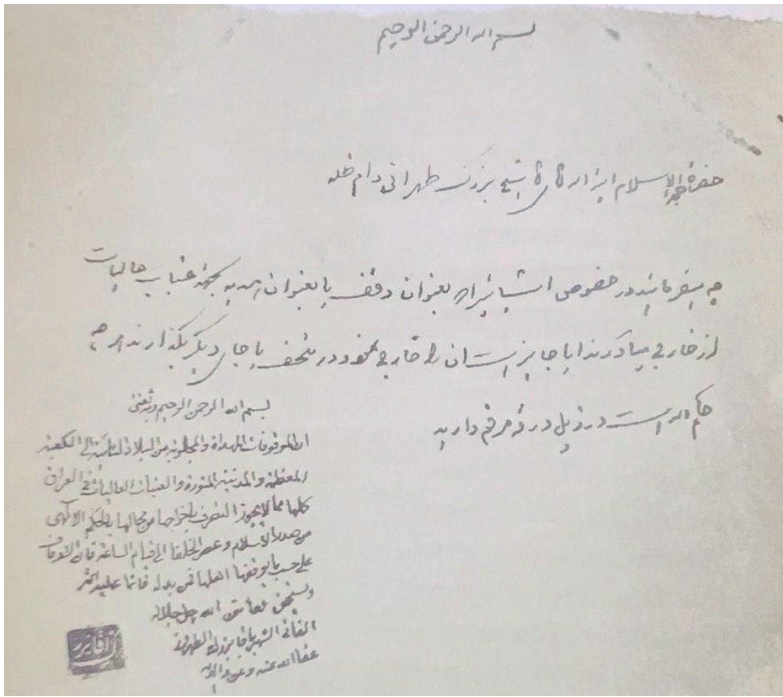 بسم الله الرحمن الرحیم
حضرة حجة الإسلام آقای شیخ بزرگ طهرانی دام ظله
چه میفرمایید در خصوص اشیائیراکه بعنوان وقف یا بعنوان هدیه بجهة عتبات عالیات
از خارج میآورند آیا جایز است آن را خارج نمود در متحف یا جای دیگر بگذارند هر چه
حکم الله است در ذیل ورقه مرقوم دارید
بسم الله الرحمن الرحیم وبه ثقتی
الموقوفات المهداة والمجلوبة من البلاد النائية الى الكعبة
المعظمة والمدينة المنورة والعتبات العاليات في العراق
كلها مما لا يجوز التصرف باخراجها من محالها بالحكم الالهي
من صدر الاسلام وعصر الخلفا الى قيام الساعة فان الوقوف
على حسب ما يوقفها اهلها فمن بدله فانما عليه اثمه
ويستحق نقمات من الله جل جلاله
الفاني الشهير باقا بزرك الطهراني
عفا الله عنه وعن والديه